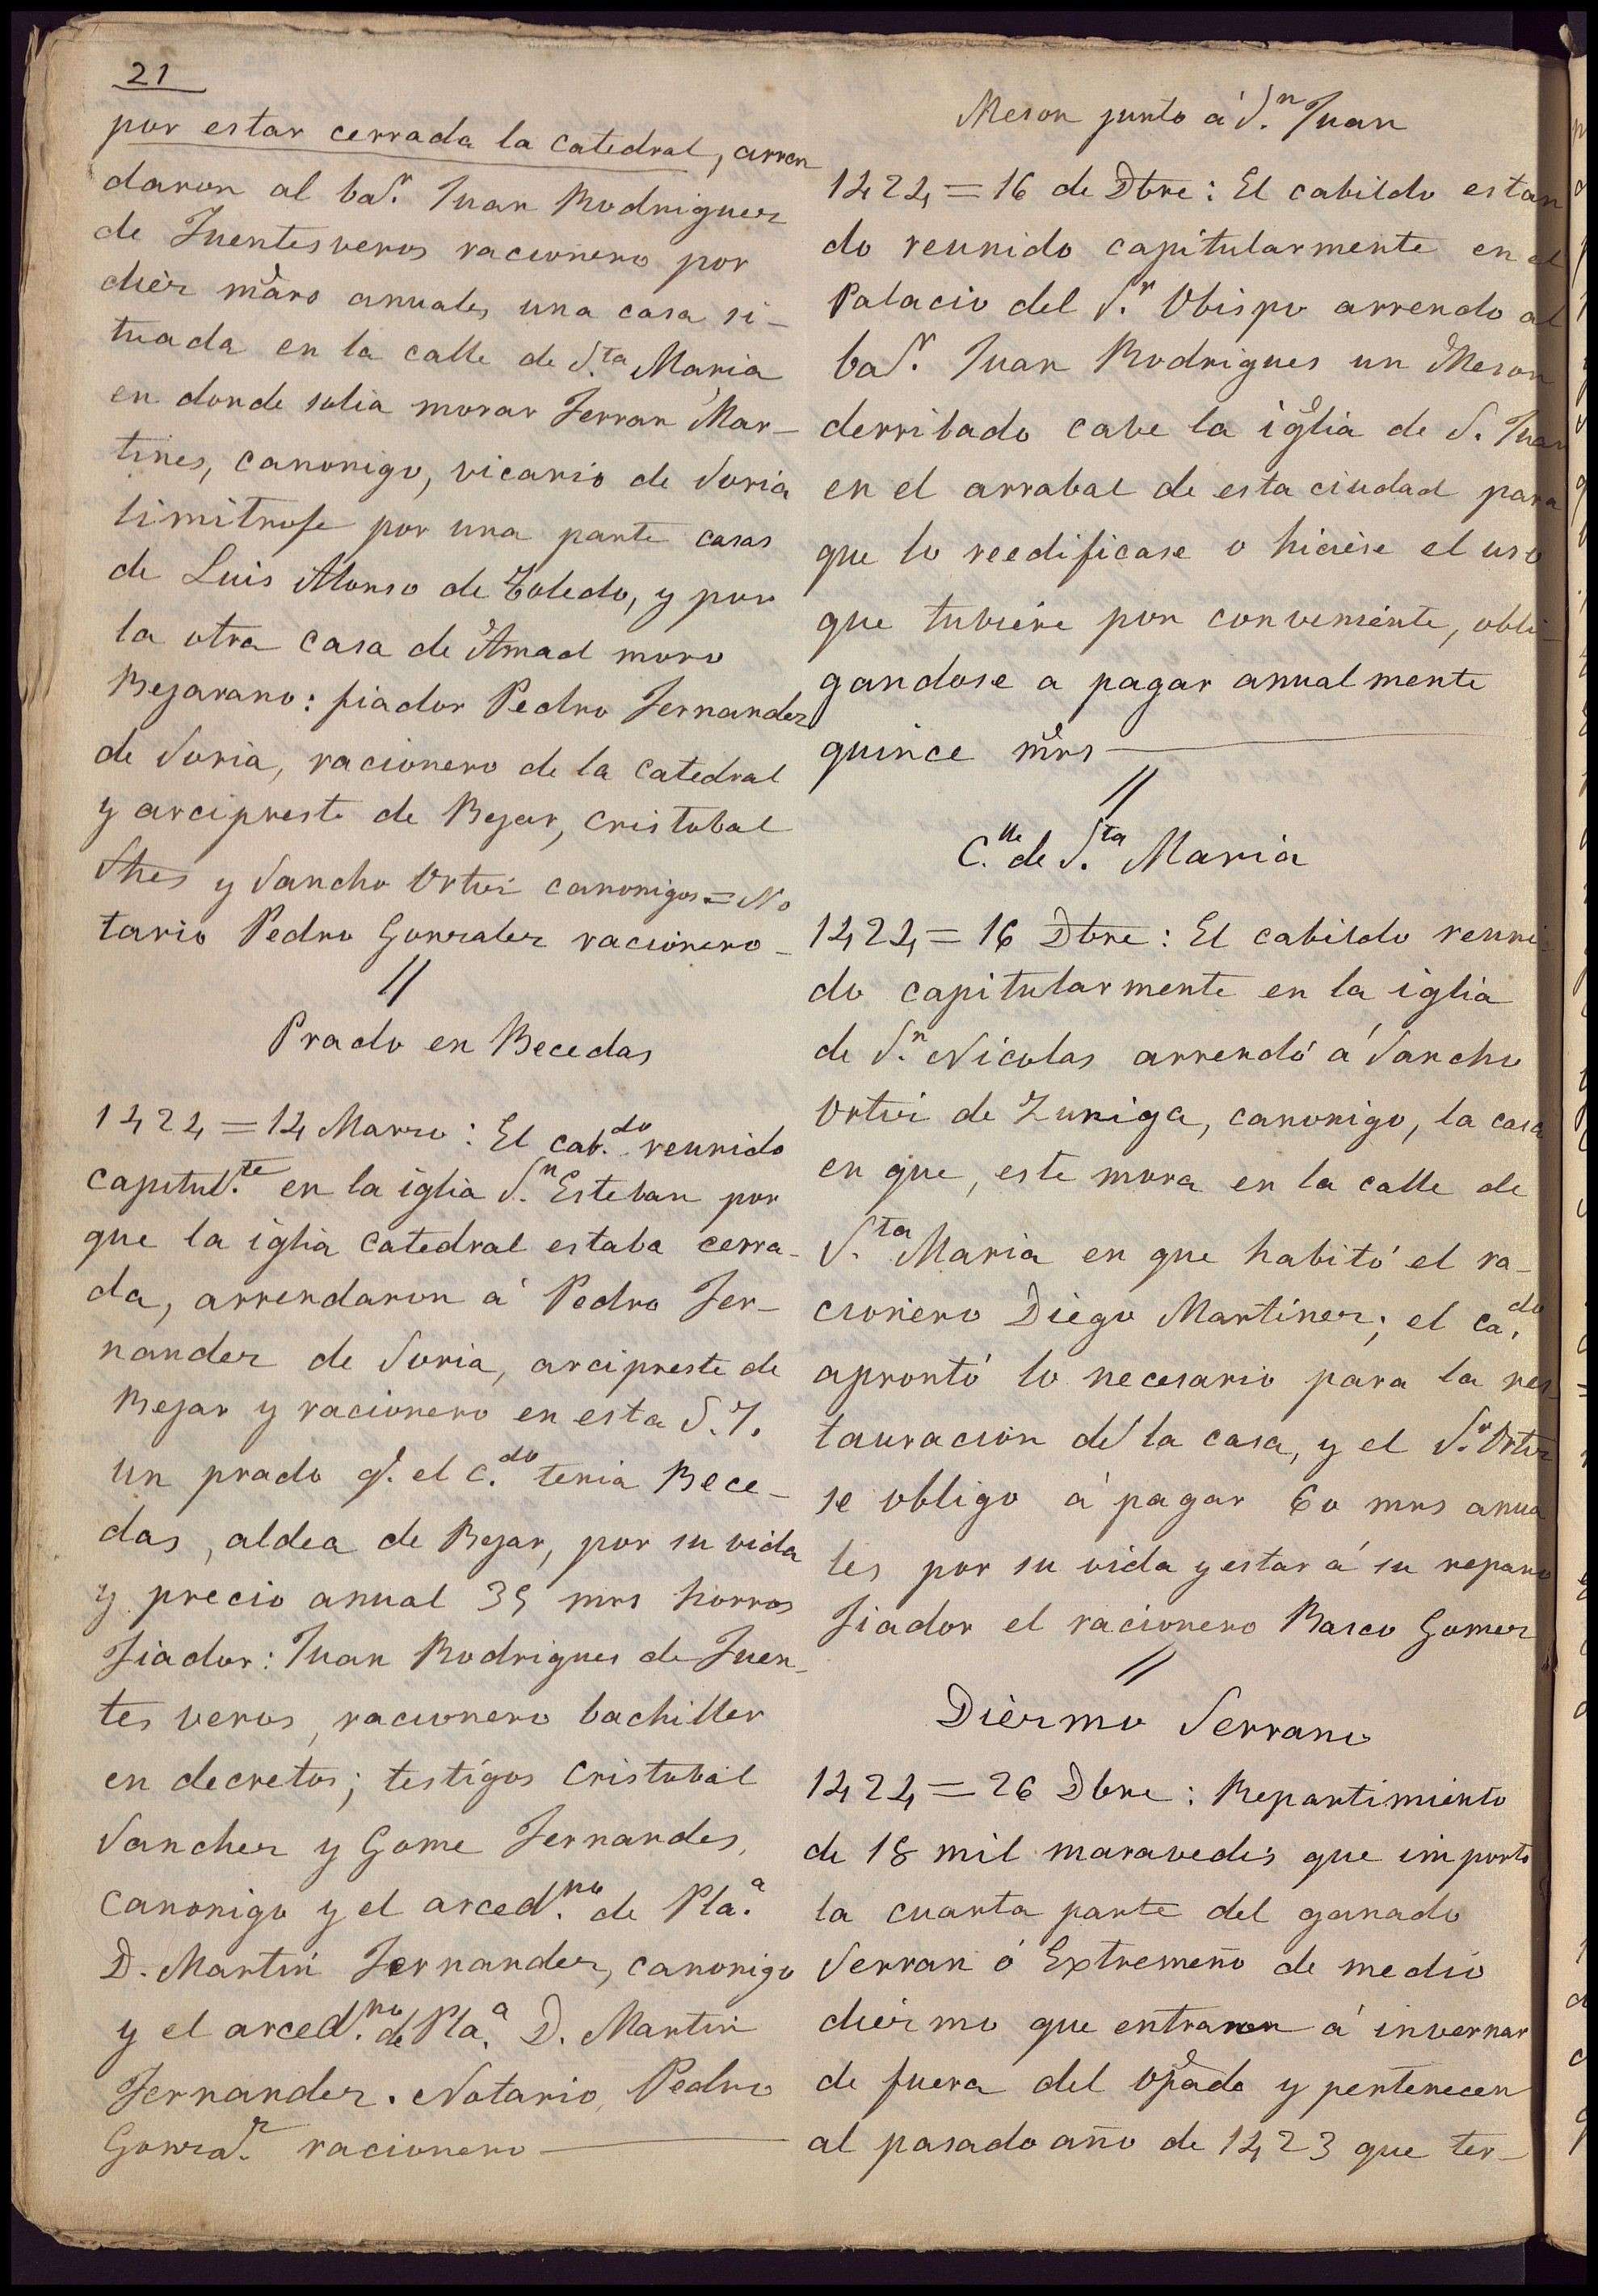 21
por estar cerrada la catedral, arren
daron al baʳ. Juan Rodriguez
de Fuentesveros racionero por
diez mᵃrs anuales una casa si-
tuada en la calle de S.ta Maria
en donde solia morar Ferran Mar-
tines, canonigo, vicario de Soria
limitrofe por una parte casas
de Luis Alonso de Toledo, y por
la otra casa de Amad moro
Bejarano: fiador Pedro Fernandez
de Soria, racionero de la catedral
y arcipreste de Bejar, Cristobal
Shes y Sancho Ortiz canonigos = No
tario Pedro Gonzalez racionero-
//
Prado en Becedas
1424 = 14 Marzo: El cab.do reunido
capitul.te en la iglia S.n Esteban por
que la iglia catedral estaba cerra-
da, arrendaron á Pedro Fer-
nandez de Soria, arcipreste de
Bejar y racionero en esta S.I.
un prado q. el c.do tenia Bece-
das, aldea de Bejar, por su vida
y precio anual 35 mrs horros
Fiador: Juan Rodrigues de Fuen-
tes veros, racionero bachiller
en decretos; testigos Cristobal
Sanchez y Gome Fernandes,
canonigo y el arced.no de Pla.a
D. Martin Fernandez, canonigo
y el arced.no de Pla.a D. Martin
Fernandez. Notario, Pedro
Gonza.z racionero
Meson junto á S.n Juan
1424 = 16 de Dbre: El cabildo estan
do reunido capitularmente en el
Palacio del S.r Obispo arrendo al
baʳ. Juan Rodrigues un Meson
derribado cabe la iglia de S. Juan
en el arrabal de esta ciudad para
que lo reedificase o hiciese el uso
que tubiere por conveniente, obli-
gandose a pagar anualmente
quince mrs
//
C.lle de S.ta Maria
1424 = 16 Dbre: El cabildo reuni-
do capitularmente en la iglia
de S.n Nicolas arrendó á Sancho
Ortiz de Zuniga, canonigo, la casa
en que, este mora en la calle de
S.ta Maria en que habitó el ra-
cionero Diego Martinez; el ca.do
aprontó lo necesario para la res-
tauracion de la casa, y el S.r Ortiz
se obligo á pagar 60 mrs anua
les por su vida y estar á su reparo
Fiador el racionero Basco Gomez
//
Diezmo Serrano
1424 = 26 Dbre: Repartimiento
de 18 mil maravedis que importo
la cuarta parte del ganado
Serran ó Extremeño de medio
diezmo que entraron á invernar
de fuera del Opado y pertenecen
al pasado año de 1423 que ter-